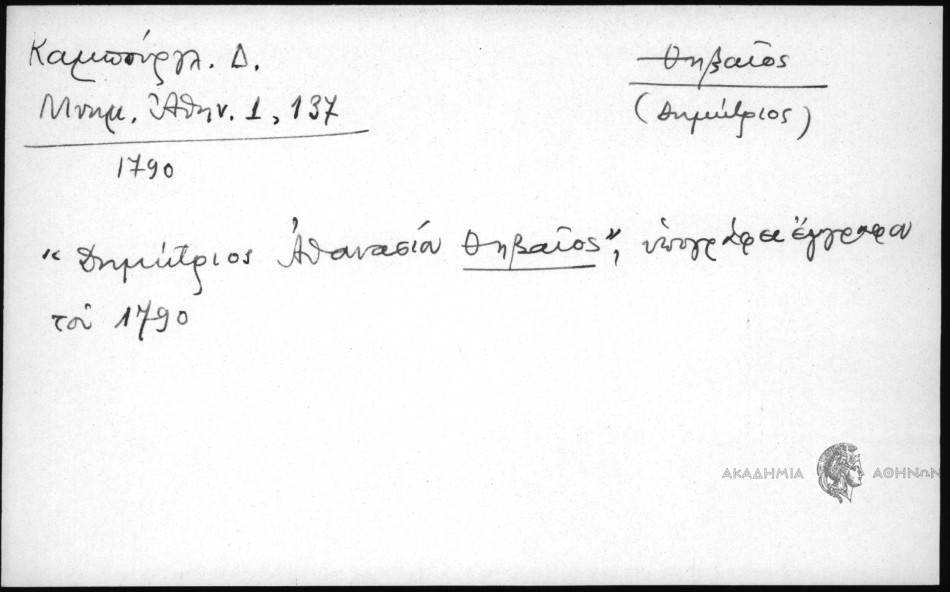 Καμπούργλ. Δ.
Μνημ. Ἀθην. 1, 137
1790
Θηβαῖος
(Δημήτριος)
“Δημήτριος Ἀθανασίου Θηβαῖος”, ὑπογράφει ἔγγραφον
τοῦ 1790
ΑΚΑΔΗΜΙΑ ΑΘΗΝΩΝ